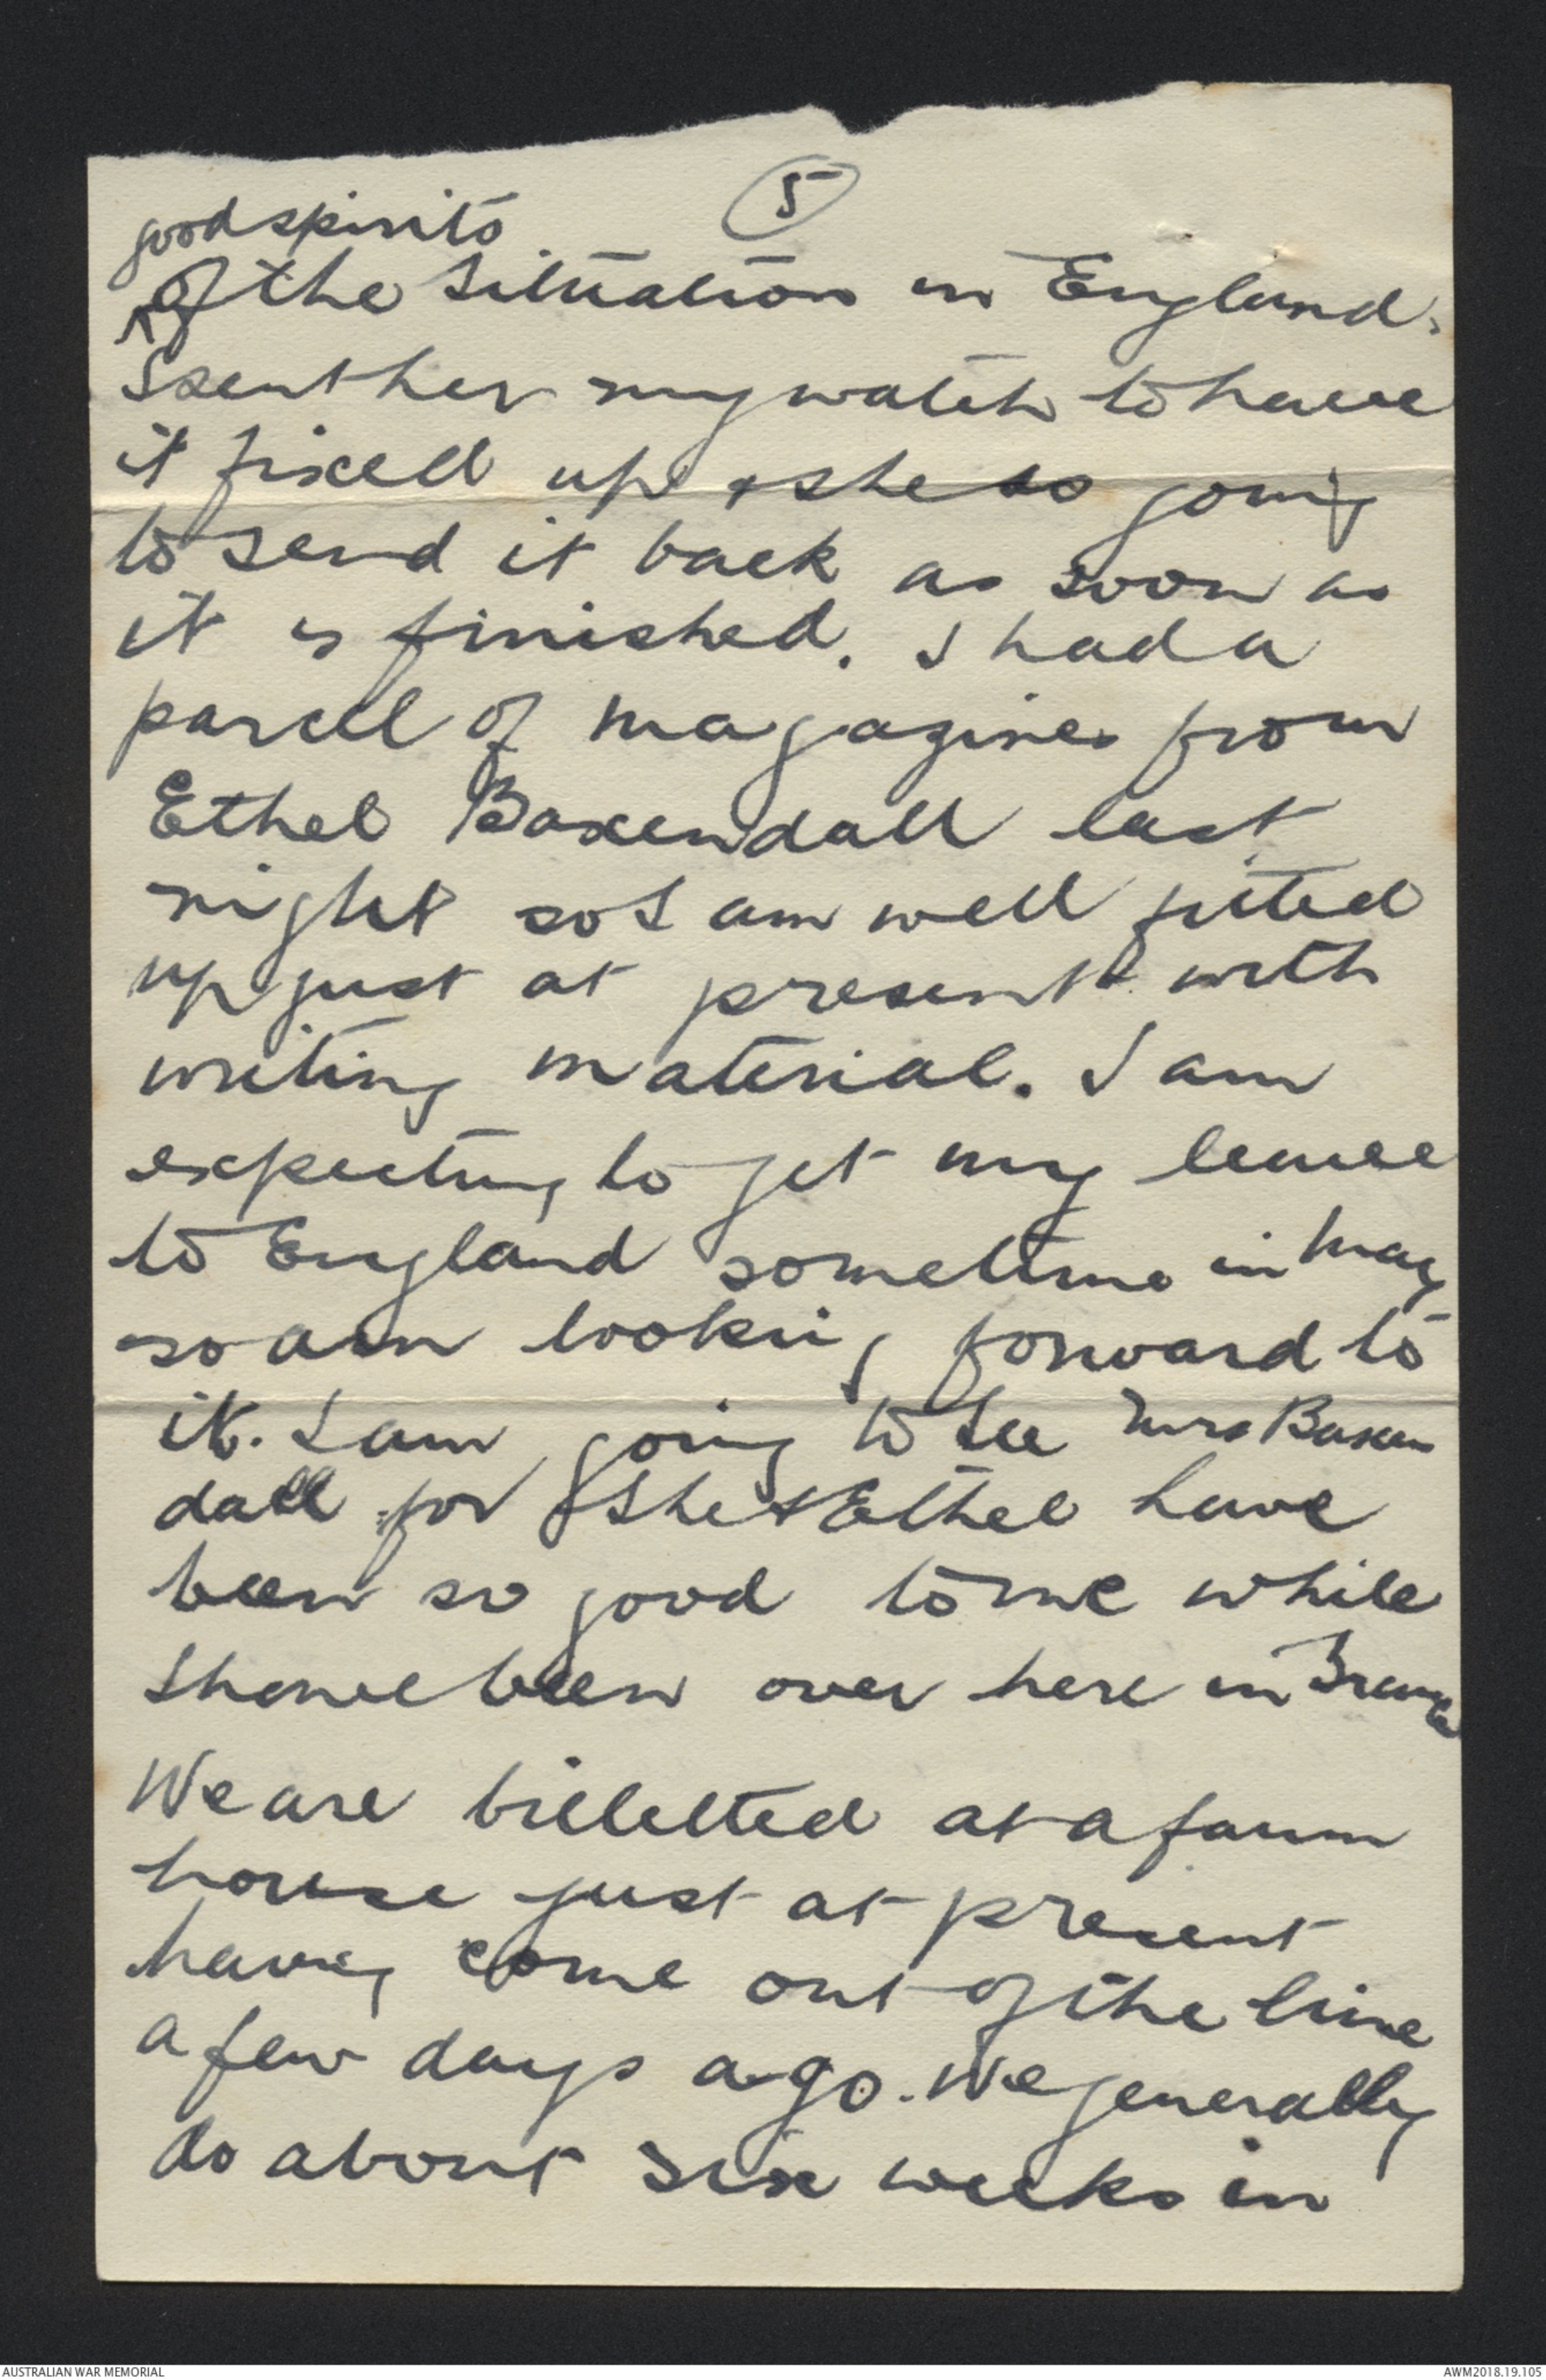 5
good spirits
of the situation in England.
I sent her my watch to have
it fixed up & she is going
to send it back as soon as
it is finished. I had a
parcel of magazines from
Ethel Baxendall last
night so I am well fitted
up just at present with
writing material. I am
expecting to get my leave
to England sometime in May
so am looking forward to
it. I am going to see Mrs Baxen
dall for she & Ethel have
been so good to me while
I have been over here in France
We are billetted at a farm
house just at present
having come out of the line
a few days ago. We generally
do about six weeks in
AUSTRALIAN WAR MEMORIAL
AWM2018.19.105